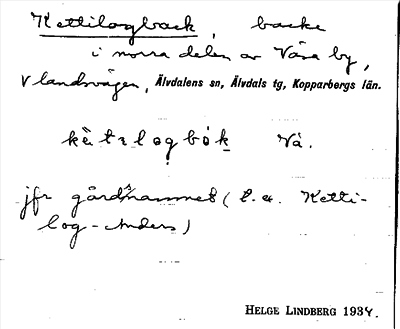 Kettilogback, backe
i norra delen av Våsa by,
V landsvägen, Älvdalens sn, Älvdals tg, Kopparbergs län.
kètɩlogbók Vå.
jfr gårdsnamnet (t. ex. Ketti-
log-Anders)
HELGE LINDBERG 1934.